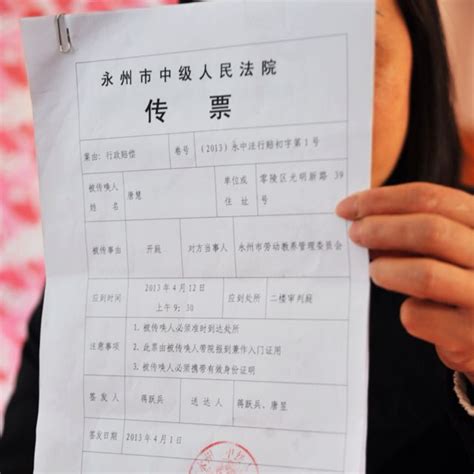 永州市中级人民法院
传票
案由：行政赔偿 卷号 （2013）永中法行赔初字第1号
被传唤人姓名 唐慧 单位或住址 零陵区光明新路39号
被传事由 开庭 对方当事人 永州市劳动教养管理委员会
应到时间 2013年4月12日上午9：30 应到处所 二楼审判庭
注意事项
1.被传唤人必须准时到达处所
2.此票由被传唤人带院报到兼作入门证用
3.被传唤人必须携带有效身份证明
签发人 蒋跃兵 送达人 蒋跃兵、唐昱
签发日期 2013年4月1日